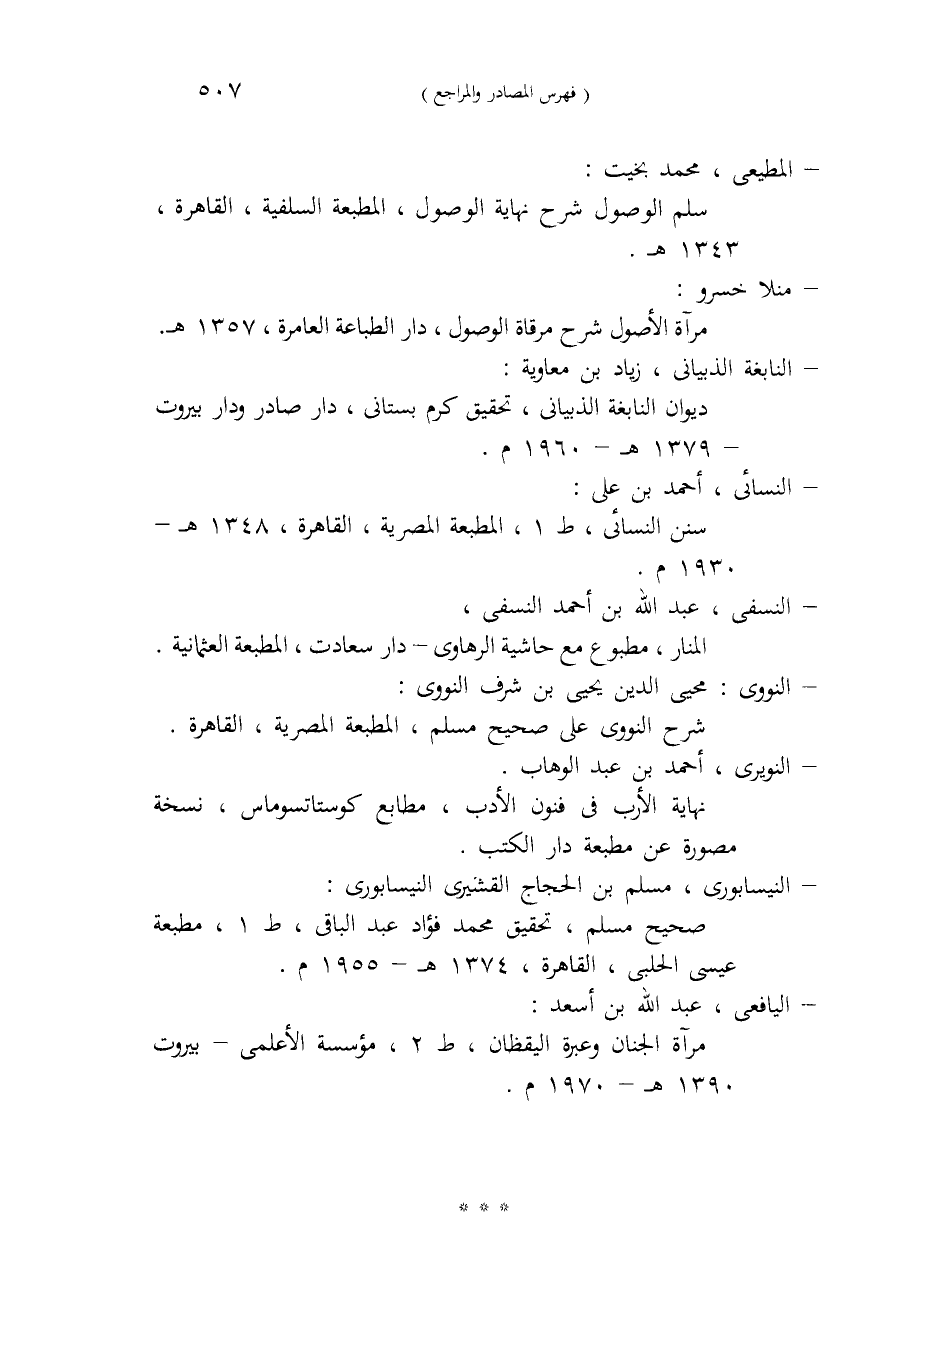 ( فهرس المصادر والمراجع ) ٥٠٧
– المطيعى ، محمد بخيت :
سلم الوصول شرح نهاية الوصول ، المطبعة السلفية ، القاهرة ،
١٣٤٣ هـ .
– منلا خسرو :
مرآة الأصول شرح مرقاة الوصول ، دار الطباعة العامرة ، ١٣٥٧ هـ.
– النابغة الذبيانى ، زياد بن معاوية :
ديوان النابغة الذبيانى ، تحقيق كرم بستانى ، دار صادر ودار بيروت
– ١٣٧٩ هـ – ١٩٦٠ م .
– النسائى ، أحمد بن على :
سنن النسائى ، ط ١ ، المطبعة المصرية ، القاهرة ، ١٣٤٨ هـ –
١٩٣٠ م .
– النسفى ، عبد الله بن أحمد النسفى ،
المنار ، مطبوع مع حاشية الرهاوى – دار سعادت ، المطبعة العثمانية .
– النووى : محيى الدين يحيى بن شرف النووى :
شرح النووى على صحيح مسلم ، المطبعة المصرية ، القاهرة .
– النويرى ، أحمد بن عبد الوهاب .
نهاية الأرب فى فنون الأدب ، مطابع كوستاتسوماس ، نسخة
مصورة عن مطبعة دار الكتب .
– النيسابورى ، مسلم بن الحجاج القشيرى النيسابورى :
صحيح مسلم ، تحقيق محمد فؤاد عبد الباقى ، ط ١ ، مطبعة
عيسى الحلبى ، القاهرة ، ١٣٧٤ هـ – ١٩٥٥ م .
– اليافعى ، عبد الله بن أسعد :
مرآة الجنان وعبرة اليقظان ، ط ٢ ، مؤسسة الأعلمى – بيروت
١٣٩٠ هـ – ١٩٧٠ م .
* * *